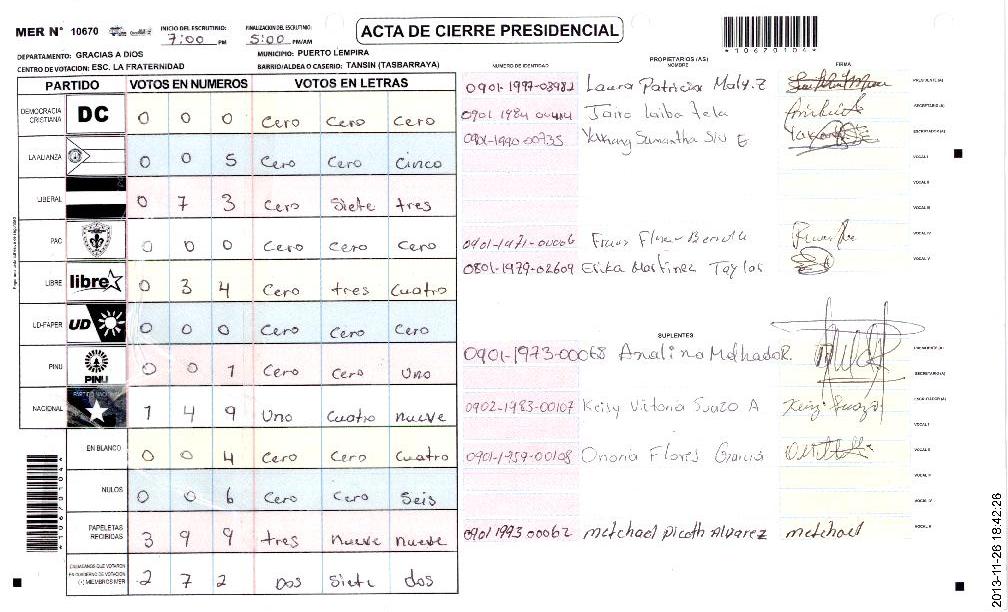 MER N° 10670 INICIO DEL ESCRUTINIO: 7:00 PM FINALIZACION DEL ESCRUTINIO: 5:00 PM/AM
ACTA DE CIERRE PRESIDENCIAL
*10670104*
DEPARTAMENTO: GRACIAS A DIOS MUNICIPIO: PUERTO LEMPIRA
CENTRO DE VOTACION: ESC. LA FRATERNIDAD BARRIO/ALDEA O CASERIO: TANSIN (TASBARRAYA)
PARTIDO VOTOS EN NUMEROS VOTOS EN LETRAS
DEMOCRACIA CRISTIANA DC 0 0 0 Cero Cero Cero
LA ALIANZA 0 0 5 Cero Cero Cinco
LIBERAL 0 7 3 Cero Siete tres
PAC 0 0 0 Cero Cero Cero
LIBRE libre 0 3 4 Cero tres Cuatro
UD-FAPER UD 0 0 0 Cero Cero Cero
PINU PINU 0 0 1 Cero Cero Uno
NACIONAL 1 4 9 Uno Cuatro nueve
EN BLANCO 0 0 4 Cero Cero Cuatro
NULOS 0 0 6 Cero Cero Seis
PAPELETAS RECIBIDAS 3 9 9 tres nueve nueve
CIUDADANOS QUE VOTARON EN CUADERNO DE VOTACION (+) MIEMBROS MER 2 7 2 Dos Siete dos
*10670104*
PROPIETARIOS (AS)
NUMERO DE IDENTIDAD NOMBRE FIRMA
0901-1997-03982 Laura Patricia PRESIDENTE (A)
0901 1984 00414 Jairo Laiba SECRETARIO (A)
0901-1990-00735 Samantha ESCRUTADOR (A)
VOCAL I
VOCAL II
VOCAL III
0901-1971-00006 VOCAL IV
0801-1979-02609 Erika Martinez Taylor VOCAL V
SUPLENTES
0901-1973-00068 Analina Melhado R. PRESIDENTE (A)
SECRETARIO (A)
0902-1983-00107 Keisy Vitoria Suazo A ESCRUTADOR (A)
VOCAL I
0901-1959-00108 Onoria Flores Garcia VOCAL II
VOCAL III
VOCAL IV
0901 1993 00062 metchael Picoth Alvarez metchael VOCAL V
2013-11-26 18:42:26